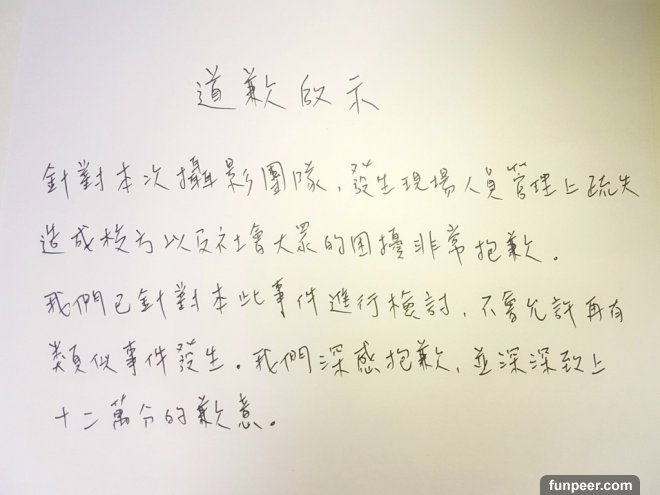 道歉啟示
針對本次攝影團隊，發生現場人員管理上疏失
造成校方以及社會大眾的困擾非常抱歉。
我們已針對本此事件進行檢討，不會允許再有
類似事件發生。我們深感抱歉，並深深致上
十二萬分的歉意。
funpeer.com